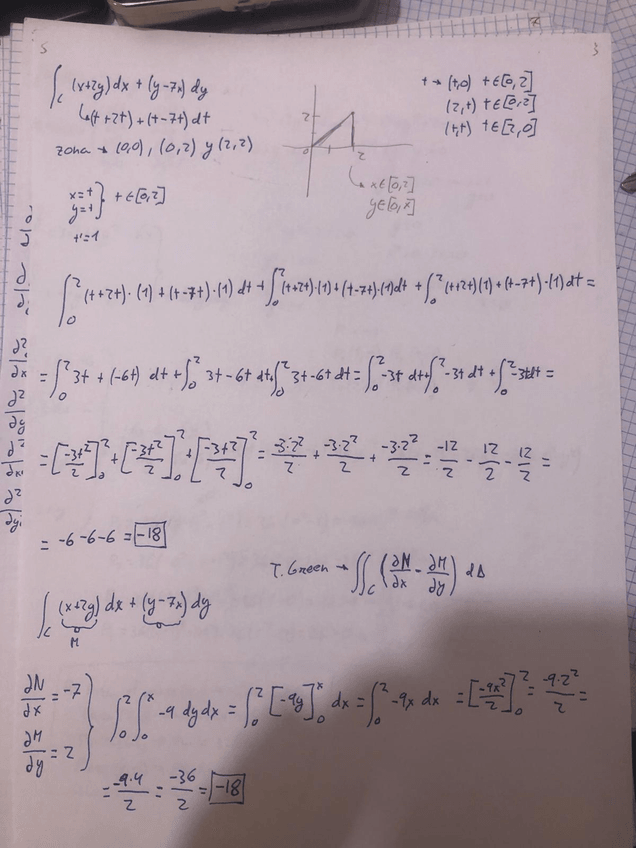 5
3
∫_C (x+2y) dx + (y-7x) dy
↳(t+2t) + (t-7t) dt
zona → (0,0), (0,2) y (2,2)
2
0 1 2
↳ x∈[0,2]
y∈[0,x]
t → (t,0) t∈[0,2]
(2,t) t∈[0,2]
(t,t) t∈[2,0]
x=t
y=t } t∈[0,2]
t'=1
∫_0^2 (t+2t)·(1) + (t-7t)·(1) dt + ∫_0^2 (t+2t)·(1) + (t-7t)·(1) dt + ∫_0^2 (t+2t)(1) + (t-7t)·(1) dt =
= ∫_0^2 3t + (-6t) dt + ∫_0^2 3t-6t dt + ∫_0^2 3t-6t dt = ∫_0^2 -3t dt + ∫_0^2 -3t dt + ∫_0^2 -3t dt =
= [-3t²/2]_0^2 + [-3t²/2]_0^2 + [-3t²/2]_0^2 = -3·2²/2 + -3·2²/2 + -3·2²/2 = -12/2 - 12/2 - 12/2 =
= -6-6-6 = -18
T. Green → ∬_C (∂N/∂x - ∂M/∂y) dA
∫_C (x+2y) dx + (y-7x) dy
M
∂N/∂x = -7
∂M/∂y = 2 } ∫_0^2 ∫_0^x -9 dy dx = ∫_0^2 [-9y]_0^x dx = ∫_0^2 -9x dx = [-9x²/2]_0^2 = -9·2²/2 =
= -9·4/2 = -36/2 = -18